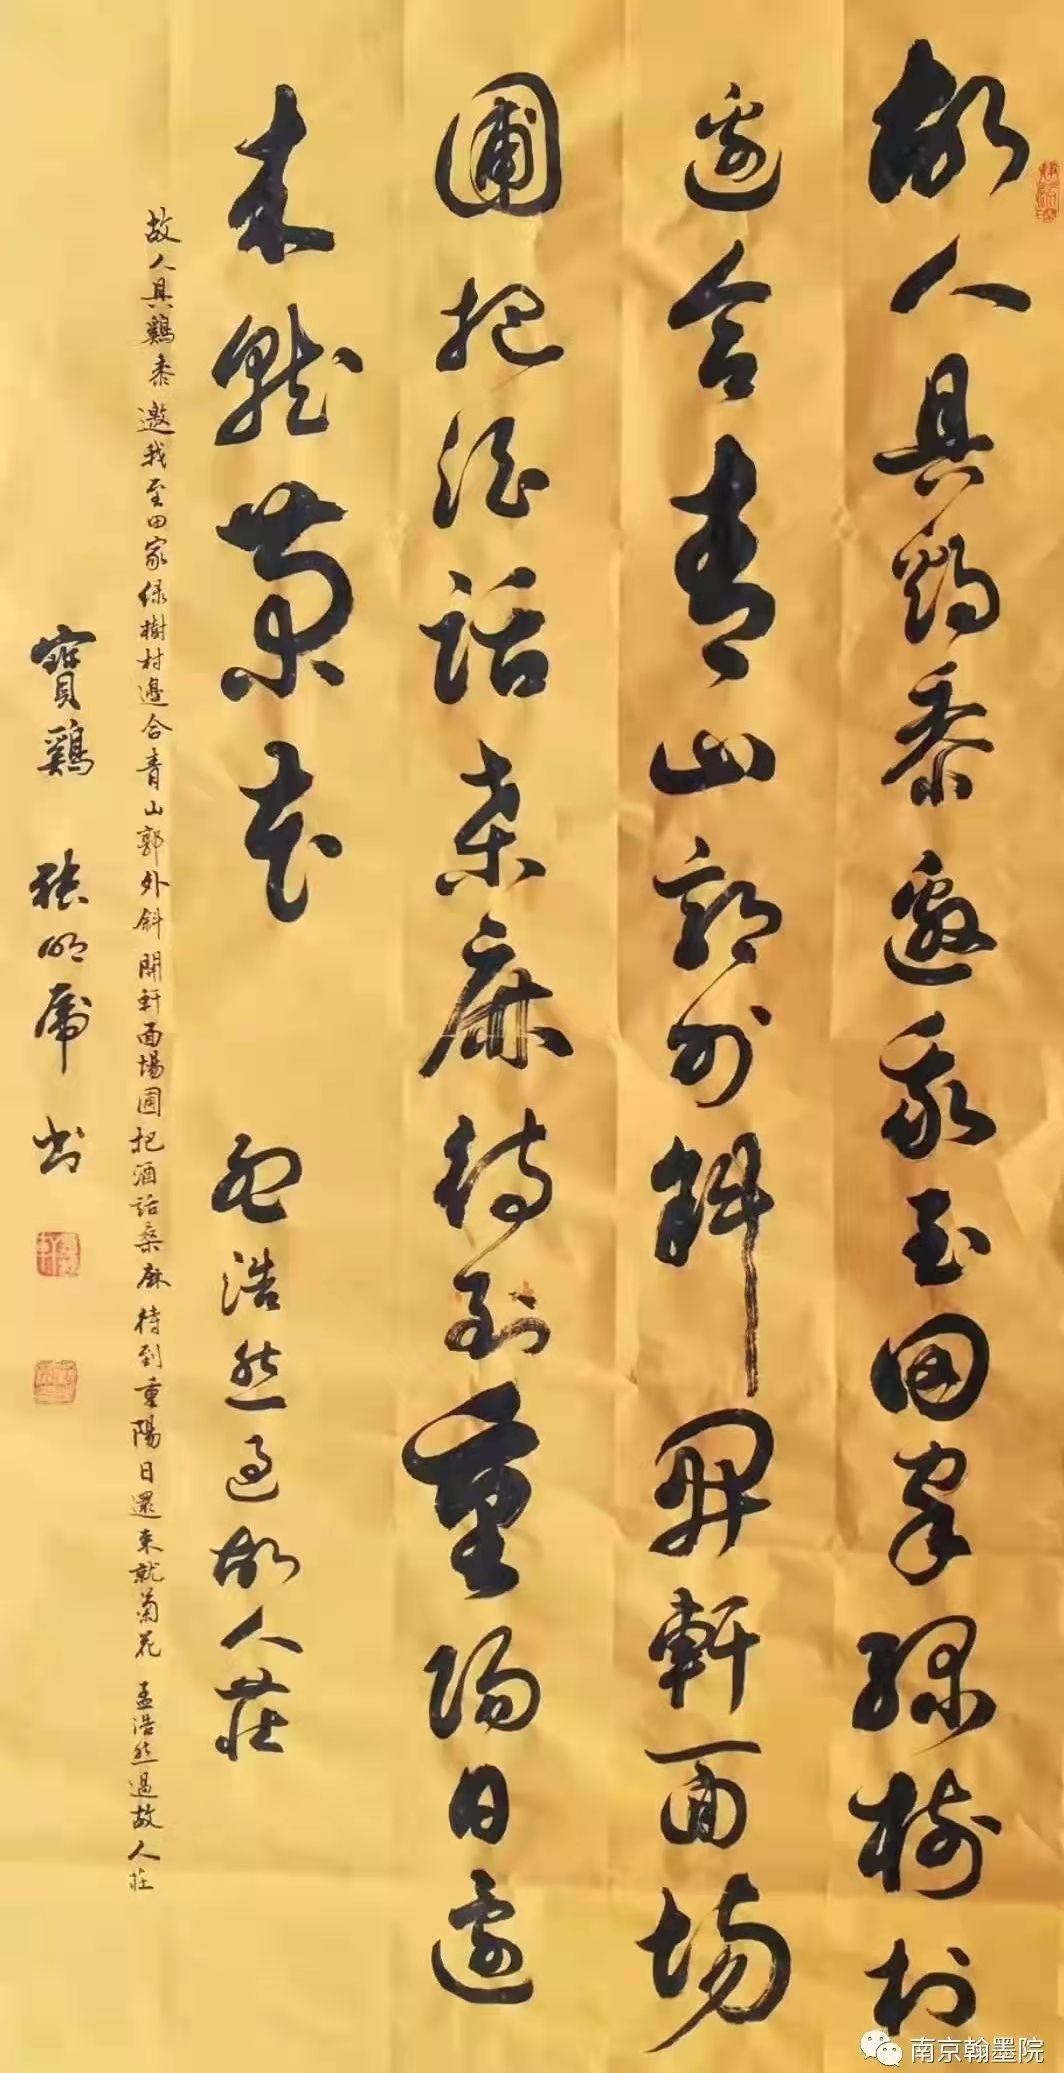 故人具鷄黍邀我至田家綠樹村
邊合青山郭外斜開軒面場
圃把酒話桑麻待到重陽日還
來就菊花 孟浩然過故人莊
故人具鷄黍邀我至田家绿樹村邊合青山郭外斜開軒面場圃把酒話桑麻待到重陽日還來就菊花 孟浩然過故人莊
寶鷄 張明虎书
南京翰墨院